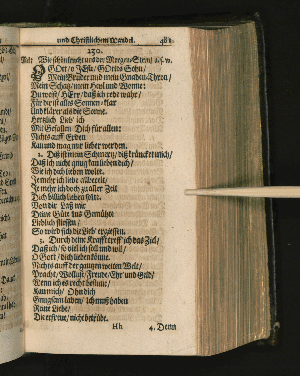 und Christlichem Wandel. 481
230.
Mel: Wie schön leucht uns der Morgen-Stern/ u.s.w.
O GOtt/ o JEsu/ GOttes Sohn/
Mein Bruder und mein Gnaden-Thron/
Mein Schatz/ mein Heyl und Wonne:
Du weist/ HErr/ daß ich rede wahr/
Für dir ist alles Sonnen-klar
Und klärer als die Sonne.
Hertzlich Lieb' ich
Mit Gefallen Dich für allen:
Nichts auff Erden
Kan und mag mir lieber werden.
2. Diß ist mein Schmertz/ diß kräncket mich/
Daß ich nicht gnug kan lieben dich/
Wie ich dich lieben wolte.
Je mehr ich liebe
Je mehr ich doch zu aller Zeit
Dich billich lieben solte.
Von dir Laß mir
Deine Güte ins Gemühte
Lieblich fliessen/
So wird sich die Lieb' ergiessen.
3. Durch deine Krafft treff' ich das Ziel/
Daß ich/ so viel ich soll und wil/
O Gott/ dich lieben könne.
Nichts auff der gantzen weiten Welt/
Pracht/ Wollust/ Freude/ Ehr und Geld/
Wenn ich es recht besinne/
Kan mich/ Ohn dich
Gnugsam laben/ Ich muß haben
Reine Liebe/
Die erfreut/ nicht betrübe.
Hh 4. Denn